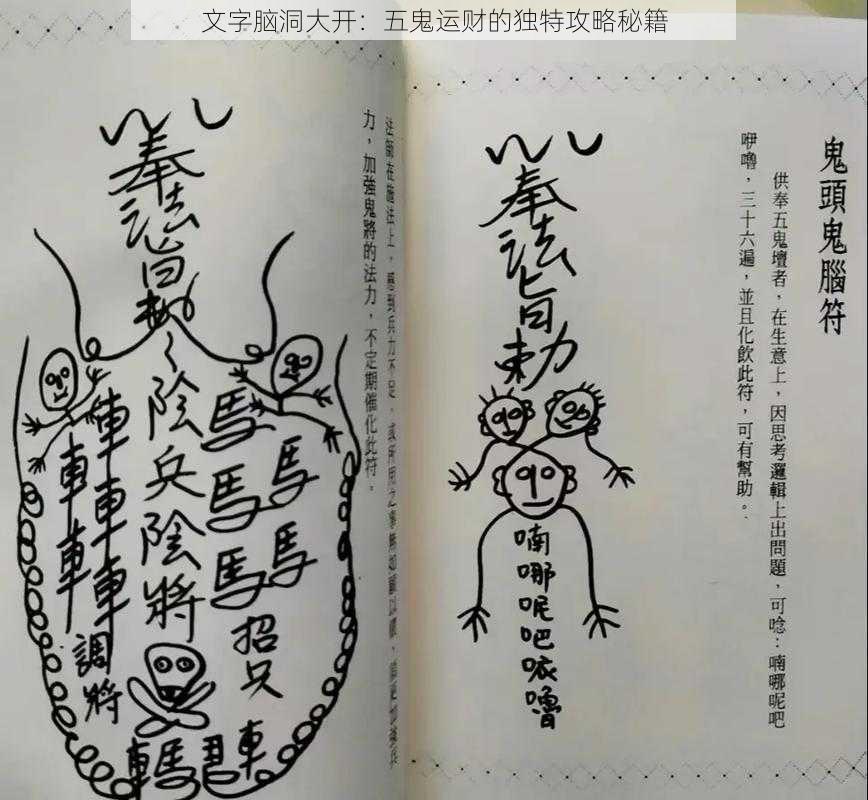 文字脑洞大开：五鬼运财的独特攻略秘籍
鬼頭鬼腦符
供奉五鬼壇者，在生意上，因思考邏輯上出問題，可唸：喃哪呢吧
咿嚕，三十六遍，並且化飲此符，可有幫助。
奉法旨勅
喃哪呢吧咴嚕
法師在施法上，感到兵力不足，或所用之事無如願以償，
力，加強鬼將的法力，不定期催化此符。
奉法旨勅
陰兵陰將
馬馬馬
馬馬
招兵
車車車
車車車
調將
車馬 車